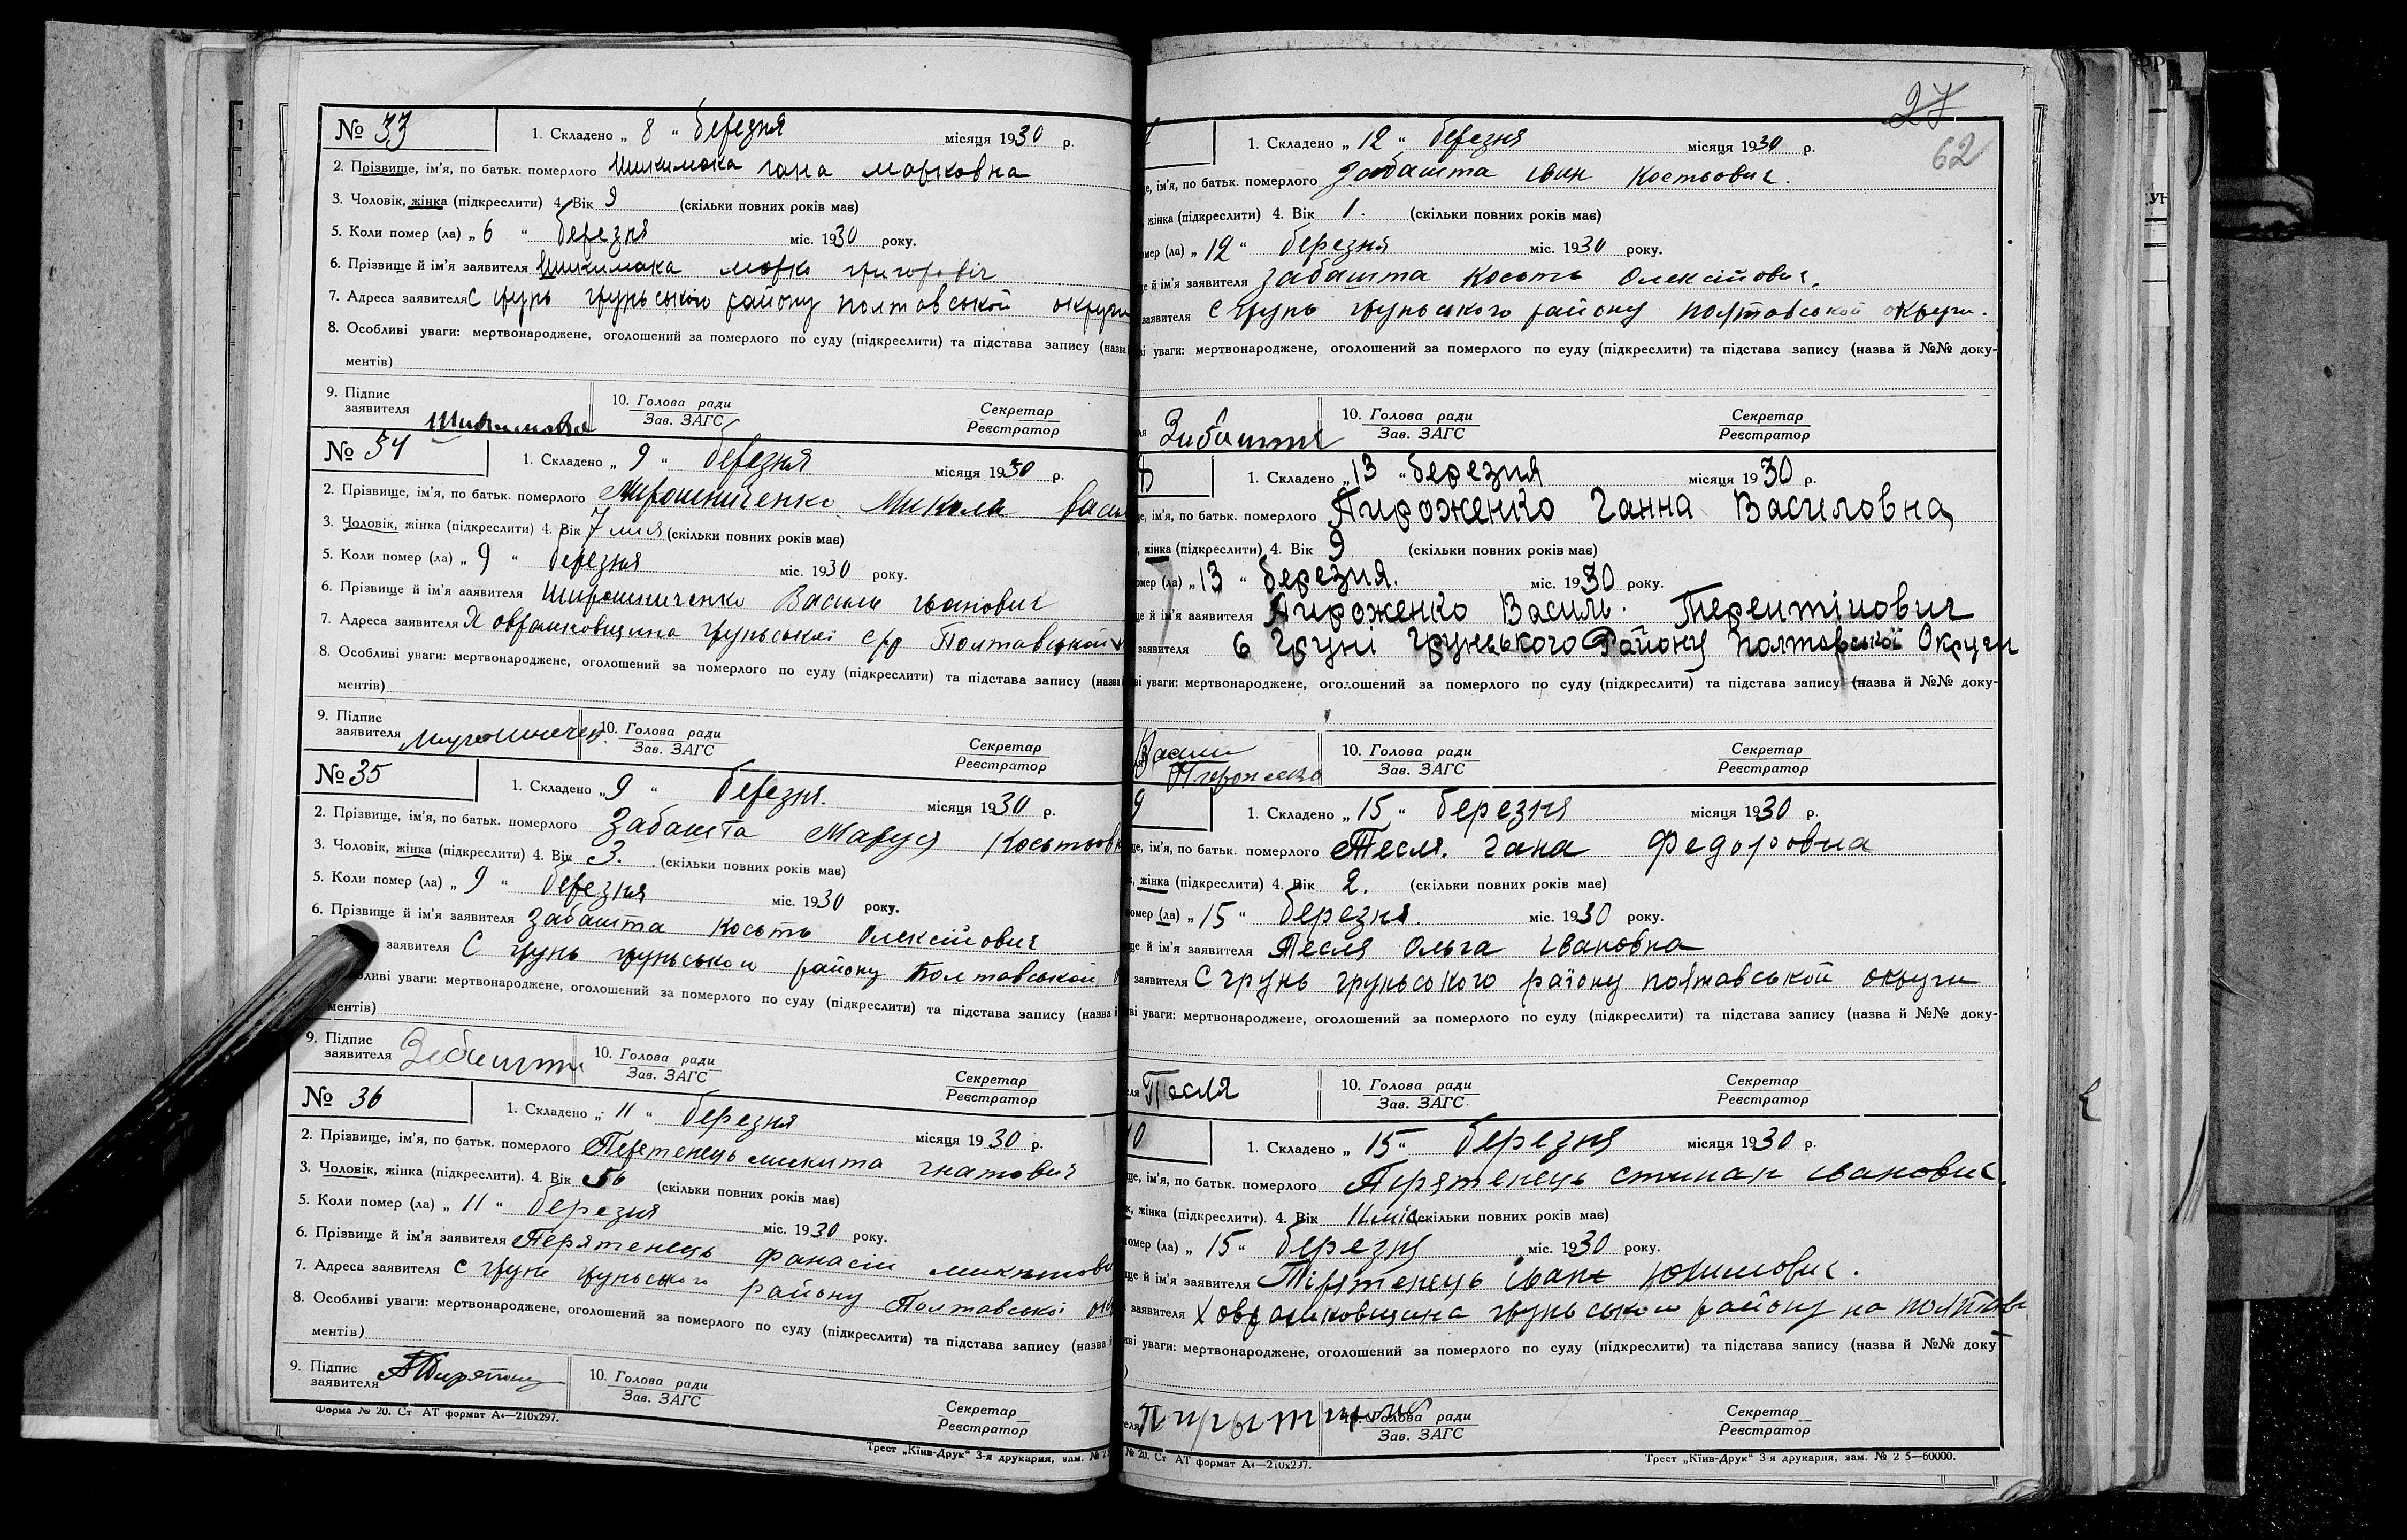 № 33
1. Складено „ 8 “ березня місяця 1930 р.
2. Прізвище, ім'я, по батьк. померлого Шикимака гана марковна
3. Чоловік, жінка (підкреслити) 4. Вік 9 (скільки повних років має)
5. Коли помер (ла) „ 6 “ березня міс. 1930 року.
6. Прізвище й ім'я заявителя Шикимака марко григоровіч
7. Адреса заявителя С грунь груньського району полтавської округи
8. Особливі уваги: мертвонароджене, оголошений за померлого по суду (підкреслити) та підстава запису (назва
ментів)
9. Підпис заявителя
10. Голова ради Зав. ЗАГС
Секретар Реєстратор
№ 34
1. Складено „ 9 “ березня місяця 1930 р.
2. Прізвище, ім'я, по батьк. померлого Мирошниченко Микола Васил
3. Чоловік, жінка (підкреслити) 4. Вік 7 (скільки повних років має)
5. Коли помер (ла) „ 9 “ березня міс. 1930 року.
6. Прізвище й ім'я заявителя Мирошниченко Василь іванович
7. Адреса заявителя Х оврашковщина груньської с/р Полтавської
8. Особливі уваги: мертвонароджене, оголошений за померлого по суду (підкреслити) та підстава запису (назва
ментів)
9. Підпис заявителя
10. Голова ради Зав. ЗАГС
Секретар Реєстратор
№ 35
1. Складено „ 9 “ березня. місяця 1930 р.
2. Прізвище, ім'я, по батьк. померлого Забашта Маруся Костьовн
3. Чоловік, жінка (підкреслити) 4. Вік 3. (скільки повних років має)
5. Коли помер (ла) „ 9 “ березня міс. 1930 року.
6. Прізвище й ім'я заявителя Забашта Кость Олексійович
заявителя С грунь груньського району Полтавської
ливі уваги: мертвонароджене, оголошений за померлого по суду (підкреслити) та підстава запису (назва
ментів)
9. Підпис заявителя Забашта
10. Голова ради Зав. ЗАГС
Секретар Реєстратор
№ 36
1. Складено „ 11 “ березня місяця 1930 р.
2. Прізвище, ім'я, по батьк. померлого Перетенець микита гнатович
3. Чоловік, жінка (підкреслити). 4. Вік 56 (скільки повних років має)
5. Коли помер (ла) „ 11 “ березня міс. 1930 року.
6. Прізвище й ім'я заявителя Перятенець фанасій микитови
7. Адреса заявителя с груні груньського району Полтавської ок
8. Особливі уваги: мертвонароджене, оголошений за померлого по суду (підкреслити) та підстава запису (назва
ментів)
9. Підпис заявителя
10. Голова ради Зав. ЗАГС
Секретар Реєстратор
Форма № 20. Ст АТ формат А4—210x297.
Трест „Київ-Друк“ 3-я друкарня, зам. № 2
27
62
1. Складено „ 12 “ березня місяця 1930 р.
е, ім'я, по батьк. померлого Забашта іван Костьович.
жінка (підкреслити) 4. Вік 1. (скільки повних років має)
омер (ла) „ 12 “ березня міс. 1930 року.
е й ім'я заявителя Забашта Кость Олексійович,
заявителя С грунь груньського району полтавської округи.
ві уваги: мертвонароджене, оголошений за померлого по суду (підкреслити) та підстава запису (назва й №№ доку-
Забашта
10. Голова ради Зав. ЗАГС
Секретар Реєстратор
1. Складено „ 13 “ березня місяця 1930 р.
е, ім'я, по батьк. померлого Пироженко Ганна Василовна
жінка (підкреслити) 4. Вік 9 (скільки повних років має)
омер (ла) „ 13 “ березня. міс. 1930 року.
е й ім'я заявителя Пироженко Василь. Терентійович
заявителя Груні Груньського Району Полтавської Округи
ві уваги: мертвонароджене, оголошений за померлого по суду (підкреслити) та підстава запису (назва й №№ доку-
10. Голова ради Зав. ЗАГС
Секретар Реєстратор
9
1. Складено „ 15 “ березня місяця 1930 р.
е, ім'я, по батьк. померлого Тесля. гана Федоровна
жінка (підкреслити) 4. Вік 2. (скільки повних років має)
омер (ла) „ 15 “ березня. міс. 1930 року.
ще й ім'я заявителя Тесля Ольга івановна
заявителя С грунь груньського району полтавської округи
ві уваги: мертвонароджене, оголошений за померлого по суду (підкреслити) та підстава запису (назва й №№ доку-
Тесля
10. Голова ради Зав. ЗАГС
Секретар Реєстратор
0
1. Складено „ 15 “ березня місяця 1930 р.
ще, ім'я, по батьк. померлого Перятенець степан іванович.
к, жінка (підкреслити). 4. Вік 11 міс (скільки повних років має)
омер (ла) „ 15 “ березня міс. 1930 року.
ще й ім'я заявителя Пірятенець іван юхимович.
заявителя Х оврашковщина груньського району на полтав
иві уваги: мертвонароджене, оголошений за померлого по суду (підкреслити) та підстава запису (назва й №№ доку
10. Голова ради Зав. ЗАГС
Секретар Реєстратор
№ 20. Ст АТ формат А4—210x297.
Трест „Київ-Друк“ 3-я друкарня, зам. № 2 5—60000.